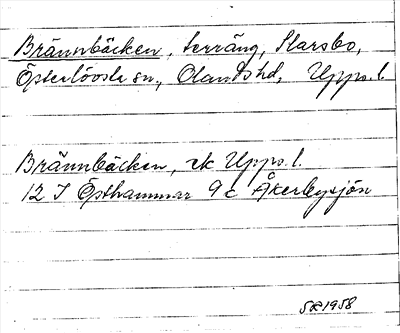 Brännbäcken, terräng, Slarsbo,
Österlövsta sn, Olands hd, Upps. l.
Brännbäcken, ek Upps. l.
12 I Östhammar 9 c Åkerbysjön
SR 1958